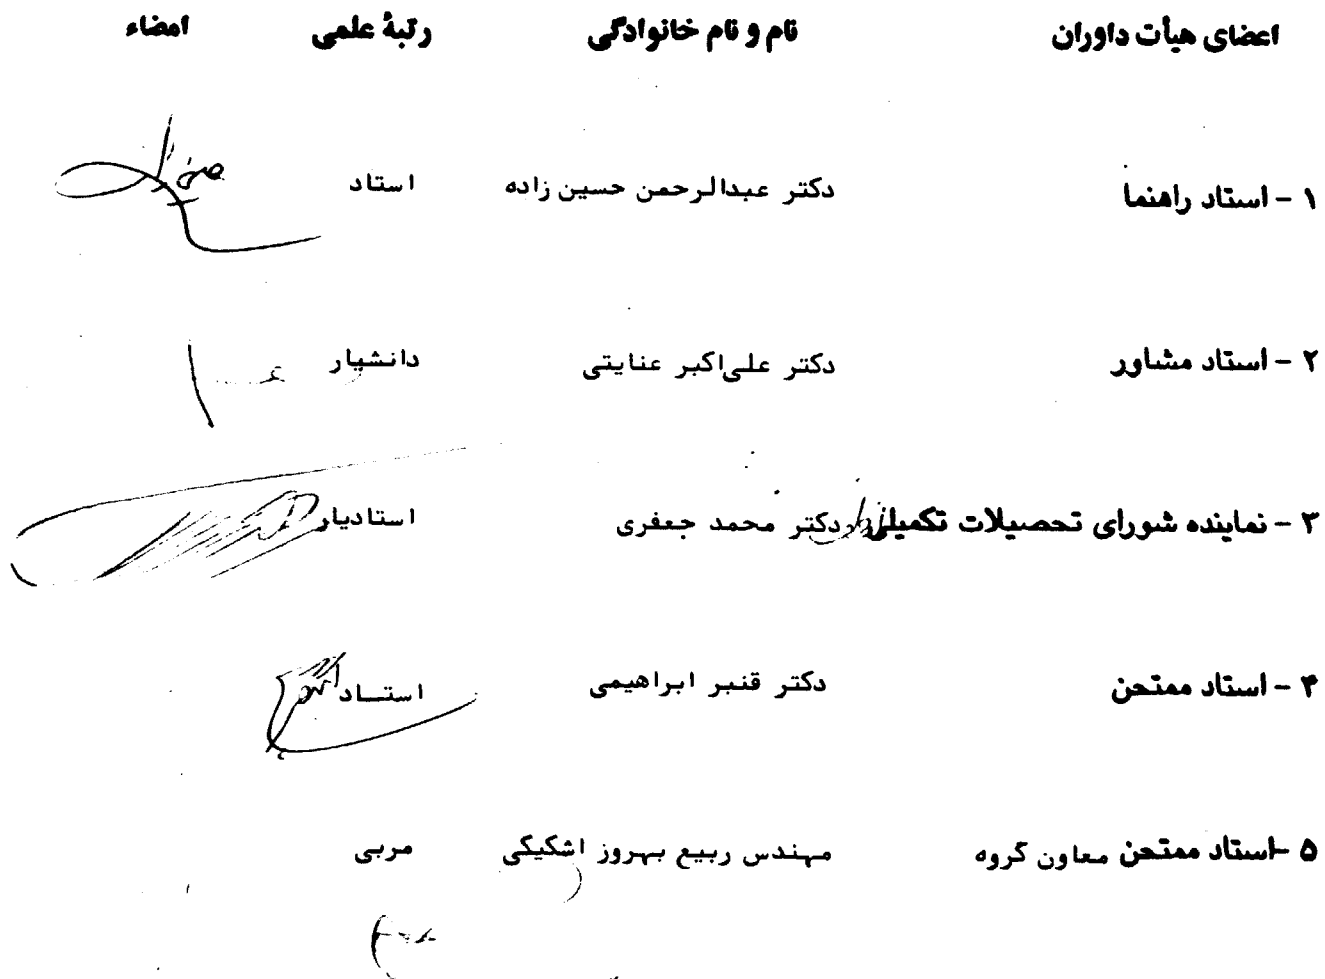 اعضای هیأت داوران نام و نام خانوادگی رتبهٔ علمی امضاء
۱ - استاد راهنما دکتر عبدالرحمن حسین زاده استاد
۲ - استاد مشاور دکتر علی‌اکبر عنایتی دانشیار
۳ - نماینده شورای تحصیلات تکمیلی دکتر محمد جعفری استادیار
۴ - استاد ممتحن دکتر قنبر ابراهیمی استــاد
۵ -استاد ممتحن معاون گروه مهندس ربیع بهروز اشکیکی مربی